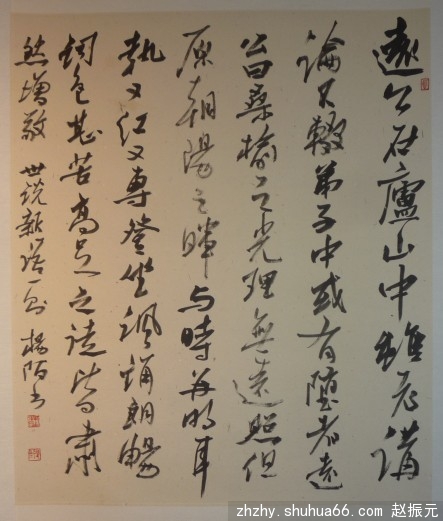 遠公在廬山中雖老講
論不輟弟子中或有墮者遠
公曰桑榆之光理無遠照但
原朝陽之暉与時並明耳
執又红又專登坐諷誦朗暢
詞色甚苦高足之徒皆肅
然增敬 世說新語一則 楊陌书
zhzhy.shuhua66.com 赵振元